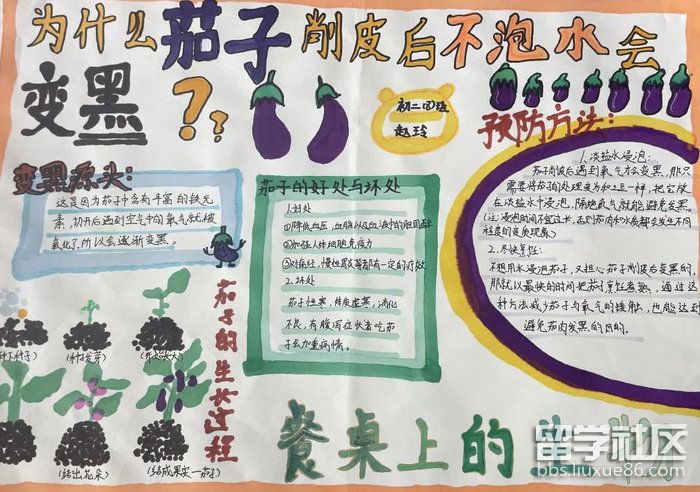 为什么茄子削皮后不泡水会
变黑??
初二(8)班
赵玲
变黑源头:
这是因为茄子中含有丰富的铁元
素,切开后遇到空气中的氧气就被
氧化了,所以会逐渐变黑。
茄子的好处与坏处
1.好处
①降低血压,血脂以及血液中的胆固醇
②加强人体细胞免疫力
③对痛经,慢性胃炎等都有一定的疗效
2.坏处
茄子性寒,体质虚寒,消化
不良,有腹泻症状者吃茄
子会加重病情。
预防方法:
1.淡盐水浸泡:
茄肉削皮后遇到氧气才会变黑,那只
需要将茄子的处理变为和土豆一样,把它放
在淡盐水中浸泡,隔绝氧气就能避免发黑
(注:浸泡时间不宜过长,否则茄肉和水质都会发生不同
程度的变质现象)
2.尽快烹饪:
不想用水浸泡茄子,又担心茄子削皮后变黑的,
那就以最快的时间把茄子烹饪煮熟,通过这
种方法减少茄子与氧气的接触,也能达到
避免茄肉发黑的目的。
茄子的生长过程
(种下种子)
(种子发芽)
(结出花朵)
(结成果实—茄子)
餐桌上的
留学社区
bbs.liuxue86.com